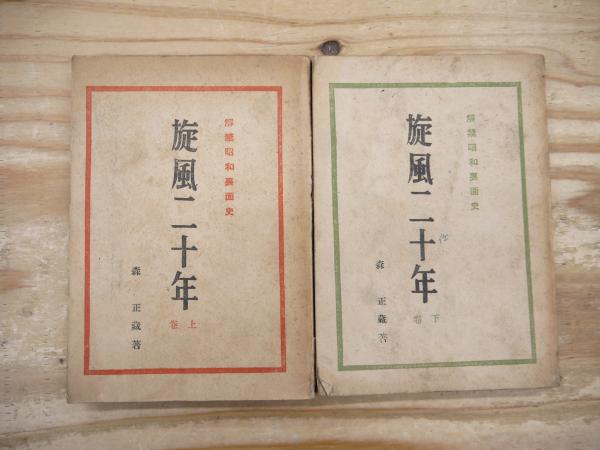 解禁昭和裏面史
旋風二十年
上巻
森正蔵著
解禁昭和裏面史
旋風二十年
下巻
森正蔵著